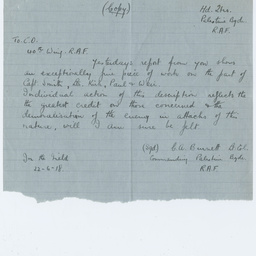 (Copy)
Hd. Qrs.
Palestine Bgde.
R.A.F.
To C.O.
40th Wing. R.A.F.
Yesterdays report from you shows
an exceptionally fine piece of work on the part of
Capt. Smith, Lt. Kirk, Paul & Weir.
Individual action of this description reflects the
the greatest credit on those concerned & the
demoralisation of the enemy in attacks of this
nature, will I am sure be felt
(Sgd) C.A. Burnett B.G.
Commanding Palestine Bgde.
R.A.F.
In the field
22-6-18